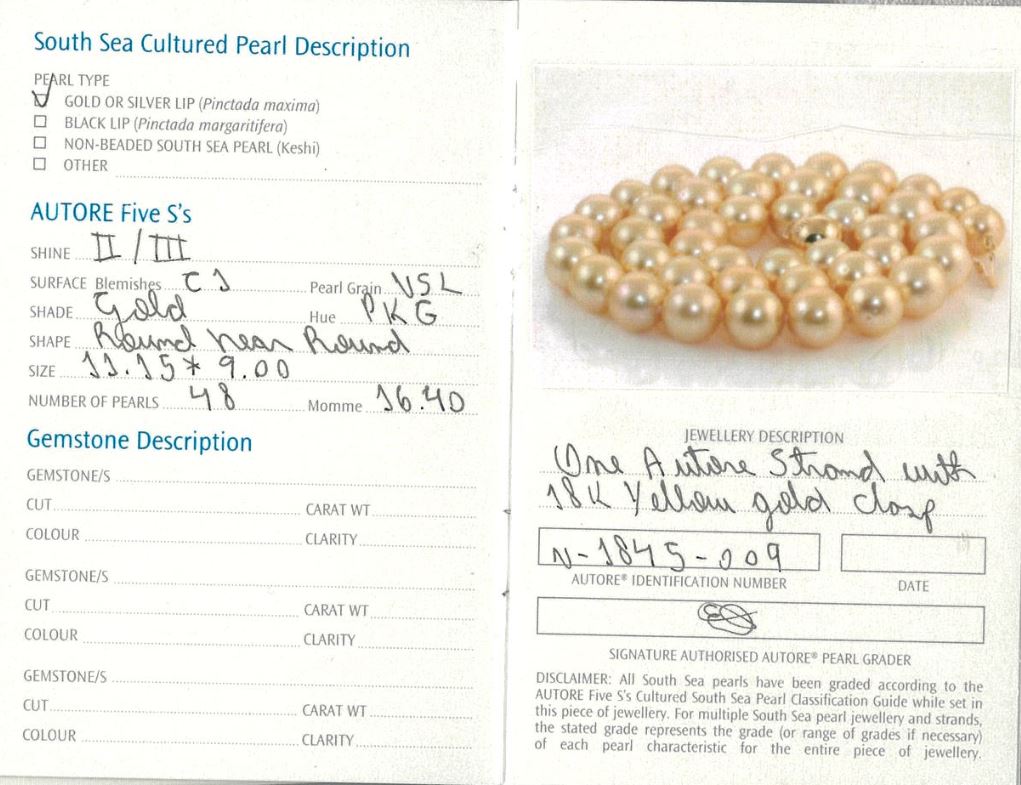 South Sea Cultured Pearl Description
PEARL TYPE
GOLD OR SILVER LIP (Pinctada maxima)
BLACK LIP (Pinctada margaritifera)
NON-BEADED SOUTH SEA PEARL (Keshi)
OTHER
AUTORE Five S's
SHINE II / III
SURFACE Blemishes C1 Pearl Grain VSL
SHADE Gold Hue PKG
SHAPE Round near Round
SIZE 11.15 * 9.00
NUMBER OF PEARLS 48 Momme 16.40
Gemstone Description
GEMSTONE/S
CUT CARAT WT
COLOUR CLARITY
GEMSTONE/S
CUT CARAT WT
COLOUR CLARITY
GEMSTONE/S
CUT CARAT WT
COLOUR CLARITY
JEWELLERY DESCRIPTION
One Autore Strand with
18K Yellow gold clasp
N-1845-009
AUTORE® IDENTIFICATION NUMBER DATE
SIGNATURE AUTHORISED AUTORE® PEARL GRADER
DISCLAIMER: All South Sea pearls have been graded according to the
AUTORE Five S's Cultured South Sea Pearl Classification Guide while set in
this piece of jewellery. For multiple South Sea pearl jewellery and strands,
the stated grade represents the grade (or range of grades if necessary)
of each pearl characteristic for the entire piece of jewellery.